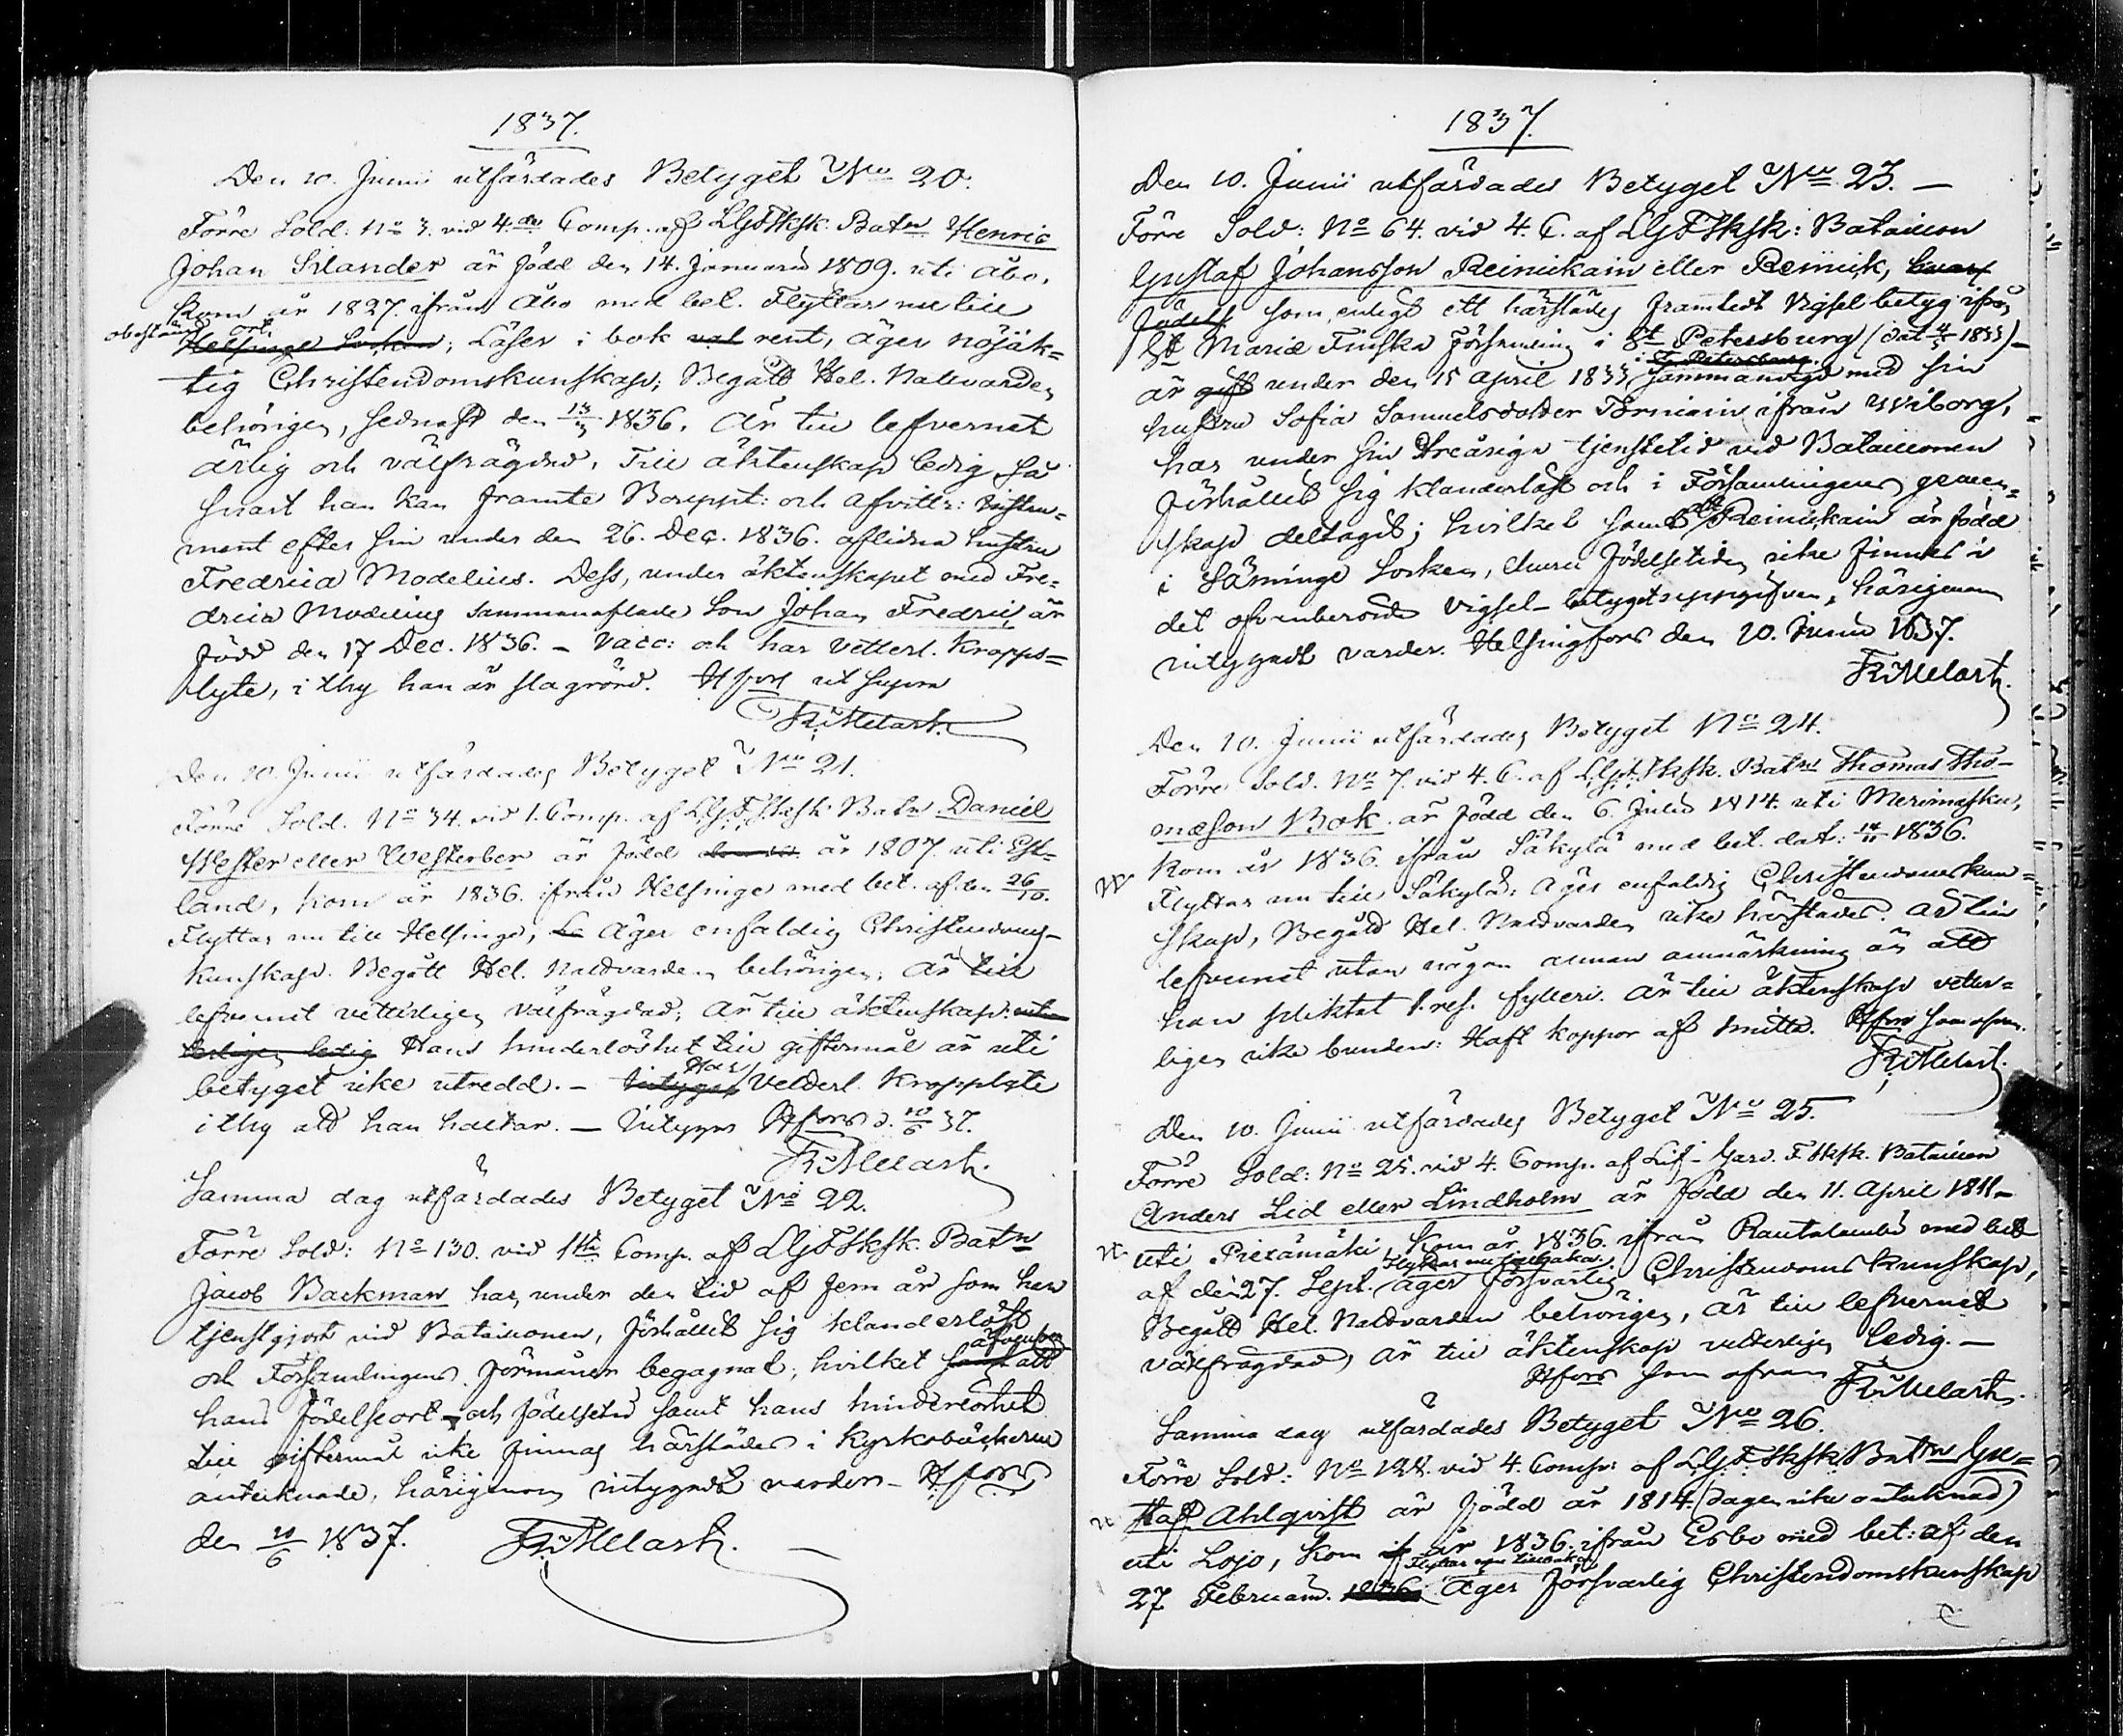 1837.
Den 10. Junii utfärdades Betyget No 20.
Förre Sold: No 3. vid 4.de Comp. af LGsFSksk. Batn Henric
Johan Silander är född den 14. Januarii 1809. uti Åbo,
kom år 1827. ifrån Åbo med bet. Flyttar nu till
obestämd ort.
Helsinge Socken; Läser i bok väl rent, äger nöjak=
tig Christendomskunskap; Begått Hel. Nattvarden
behörigen, sednast den 13/3 1836. Är till lefvernet
ärlig och välfrägdad. Till äktenskap ledig så
snart han kan framte Bouppt: och afvittr: Instru=
ment efter sin under den 26. Dec. 1836. aflidna hustru
Fredrica Modelius. Dess, under äktenskapet med Fre=
drica Modelius sammanaflade Son Johan Fredric, är
född den 17 Dec. 1836. – Vacc: och har vetterl. kropps=
lyte, i thy han är slagrörd. Hfors ut supra
Fr: Melart.
Den 10. Junii utfärdades Betyget No 21.
Förre Sold. No 34. vid 1. Comp. af LGsFSksk. Batn Daniel
Wester eller Westerber är född år 1807. uti Est=
land, kom år 1836. ifrån Helsinge med bet. af den 26/10.
Flyttar nu till Helsinge, Lä Äger enfaldig Christendoms-
kunskap. Begått Hel. Nattvarden behörigen; är till
lefvernet vetterligen välfrägdad; Är till äktenskap vet
terligen ledig Hans hinderlöshet till giftermål är uti
betyget icke utredd. – Intygas Har vetterl. kroppslyte
i thy att han haltar. – Intygas Hfors d. 10/6 37.
Fr: Melart.
Samma dag utfärdades Betyget No 22.
Förre Sold: No 130. vid 1sta Comp. af LGsFSksk. Batn
Jacob Backman har, under den tid af fem år som han
tjenstgjort vid Bataillonen, förhållit sig klanderlöst
och Församlingens förmåner begagnat; hvilket samt äfvensom att
hans födelseort och födelsetid samt hans hinderlöshet
till giftermål icke finnas härstädes i Kyrkoböckerne
antecknade, härigenom intygadt varder – Hfors
den 10/6 1837. Fr: Melart.
1837.
Den 10. Junii utfärdades Betyget No 23. –
Förre Sold: No 64. vid 4. C. af LGsFSksk: Bataillon
Gustaf Johansson Reinickain eller Reinick,
födelse som, enligt ett härstädes framtedt Vigselbetyg ifrån
St Mariæ Finska Församling i St Petersburg (dat 4/5 1833)–
är gift under den 15 April 1833 i St Petersburg sammanvigd med sin
hustru Sofia Samuelsdotter Törniain ifrån Wiborg,
har under sin treåriga tjenstetid vid Bataillonen
förhållit sig klanderlöst och i Församlingens gemen=
skap deltagit; hvilket samt att Reinickain är född
i Säminge Socken, churu födelsetiden icke finnes i
det ofvanberörde Vigsel-betyget uppgifven, härigenom
intygadt varder. Helsingfors den 10. Junii 1837.
Fr: Melart.
Den 10. Junii utfärdades Betyget No 24.
Förre Sold. No 7. vid 4. C. af LGsFSksk. Batn Thomas Tho-
mæson Bok är född den 6. Julii 1814. uti Merimasku,
kom år 1836. ifrån Säkylä med bet. dat: 14/11 1836.
Flyttar nu till Säkylä: Äger enfaldig Christendomskun=
skap, Begått Hel. Nattvarden icke härstädes. Är till
lefvernet utan någon annan anmärkning än att
han pliktat 1. res. fylleri. Är till äktenskap vetter=
ligen icke bunden: Haft koppor af smitta. Hfors som ofvan.
Fr: Melart.
Den 10. Junii utfärdades Betyget No 25.
Förre Sold: No 25. vid 4. Comp. af Lif-Gard. F. Sksk. Bataillon
Anders Lid eller Lindholm är född den 11. April 1811
uti Piexämäki, Kom år 1836. ifrån Rautalambi med bet
af den 27. Sept. Flyttar nu tillbaka. äger försvarlig Christendomskunskap,
Begått Hel. Nattvarden behörigen, är till lefvernet
välfrägdad, är till äktenskap vetterligen ledig. –
Hfors som ofvan Fr: Melart.
Samma dag utfärdades Betyget No 26.
Förre Sold: No 128. vid 4. Comp: af LGsFSksk Batn Gu=
staf Ahlqvist är född år 1814. (dagen icke antecknad)
uti Lojo, Kom if år 1836. ifrån Esbo med bet: af den
27 Februarii. 1836 Flyttar nu tillbaka Äger försvarlig Christendomskunskap